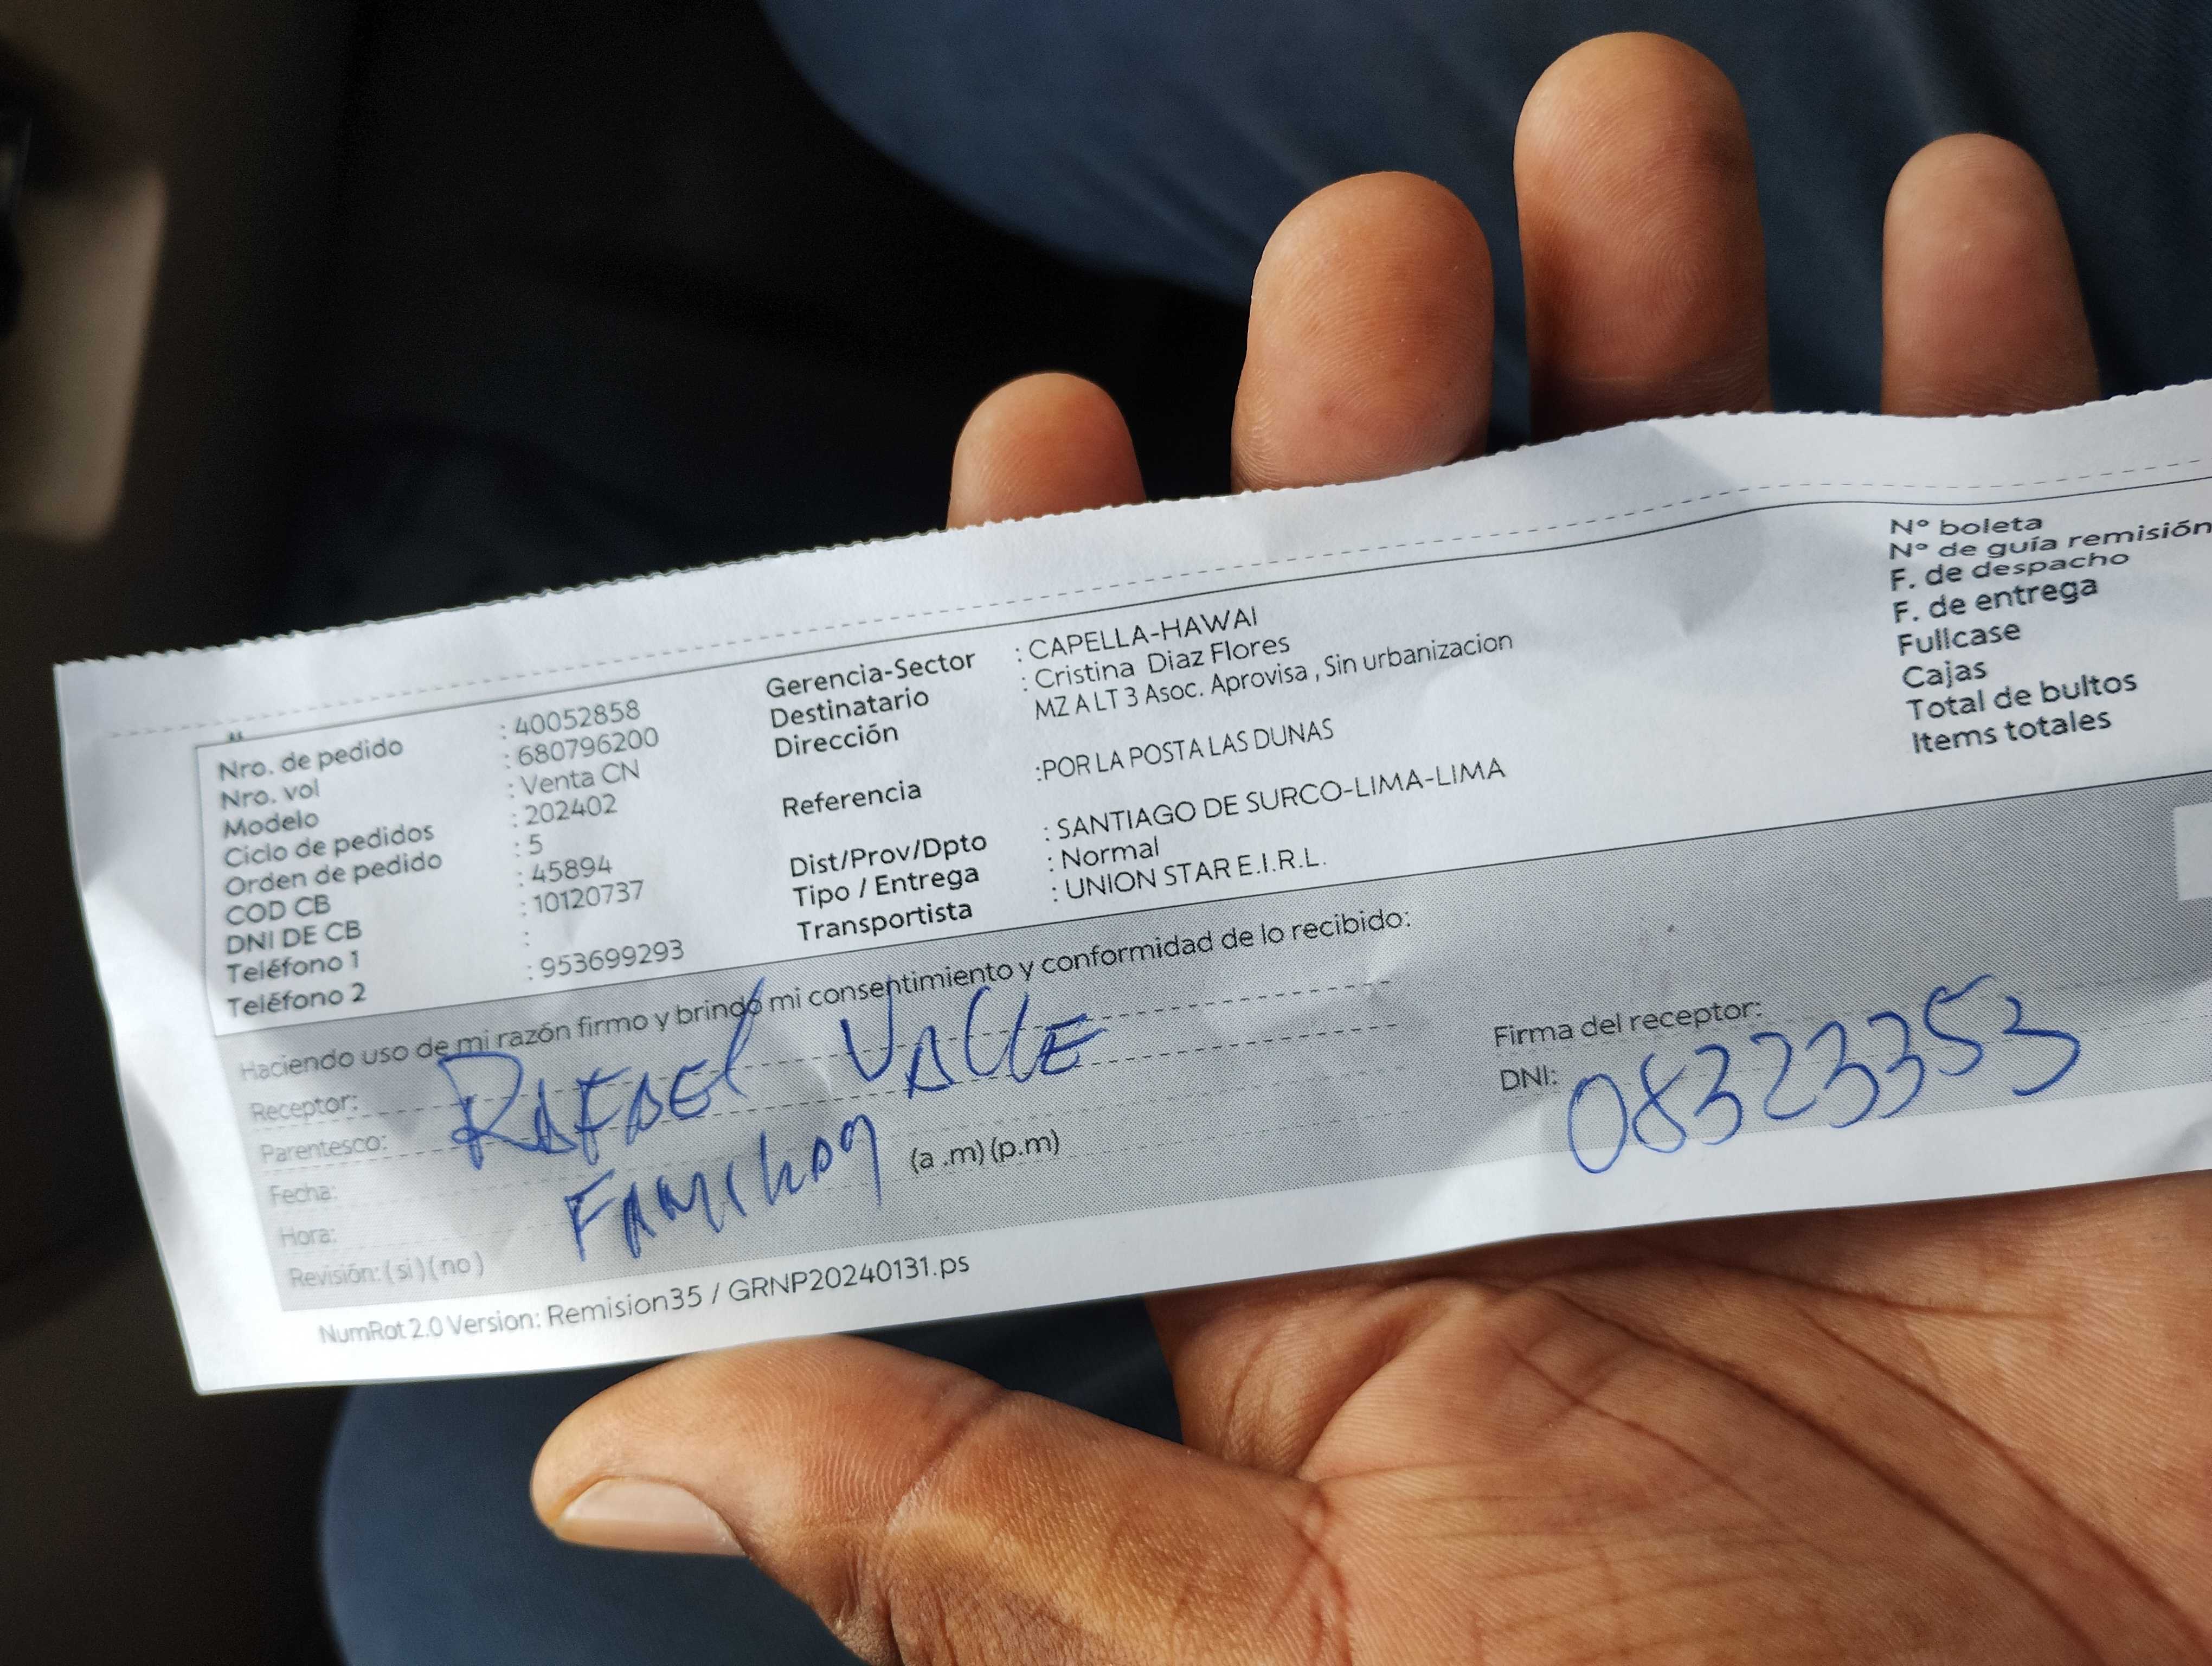 Nro. de pedido : 40052858
Nro. vol : 680796200
Modelo : Venta CN
Ciclo de pedidos : 202402
Orden de pedido : 5
COD CB : 45894
DNI DE CB : 10120737
Teléfono 1 :
Teléfono 2 : 953699293
Gerencia-Sector : CAPELLA-HAWAI
Destinatario : Cristina Diaz Flores
Dirección MZ A LT 3 Asoc. Aprovisa , Sin urbanizacion
Referencia :POR LA POSTA LAS DUNAS
Dist/Prov/Dpto : SANTIAGO DE SURCO-LIMA-LIMA
Tipo / Entrega : Normal
Transportista : UNION STAR E.I.R.L.
N° boleta
N° de guía remisión
F. de despacho
F. de entrega
Fullcase
Cajas
Total de bultos
Items totales
Haciendo uso de mi razón firmo y brindo mi consentimiento y conformidad de lo recibido:
Receptor: RAFAEL VALLE
Parentesco: FAMILIAR
Fecha:
Hora: (a .m) (p.m)
Revisión: ( si ) ( no )
Firma del receptor:
DNI: 08323353
NumRot 2.0 Version: Remision35 / GRNP20240131.ps